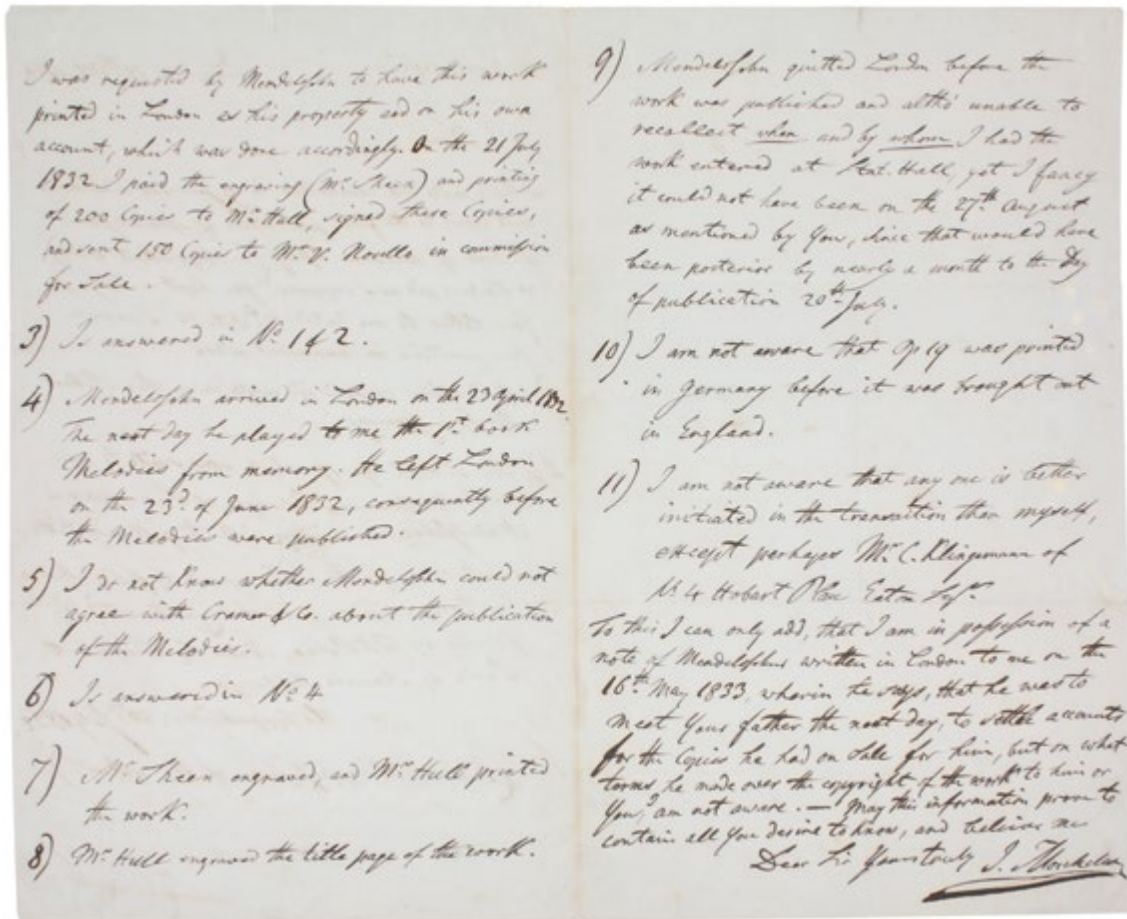 I was requested by Mendelssohn to have this work
printed in London as his property and on his own
account, which was done accordingly. On the 21 July
1832 I paid the engraving (Mr. Skeen) and printing
of 200 Copies to Mr. Hull, signed these Copies,
and sent 150 Copies to Mr. V. Novello in commission
for Sale.
3) Is answered in No. 1 & 2.
4) Mendelssohn arrived in London on the 23 April 1832.
The next day he played to me the 1st. book
Melodies from memory. He left London
on the 23d. of June 1832, consequently before
the Melodies were published.
5) I do not know whether Mendelssohn could not
agree with Cramer & Co. about the publication
of the Melodies.
6) Is answered in No. 4
7) Mr. Skeen engraved, and Mr. Hull printed
the work.
8) Mr. Hull engraved the title page of the work.
9) Mendelssohn quitted London before the
work was published and altho' unable to
recollect when and by whom I had the
work entered at Stat. Hall, yet I fancy
it could not have been on the 27th. August
as mentioned by You, since that would have
been posterior by nearly a month to the Day
of publication 20th. July.
10) I am not aware that Op 19 was printed
in Germany before it was brought out
in England.
11) I am not aware that any one is better
initiated in the transaction than myself,
except perhaps Mr. C. Klingemann of
No. 4 Hobart Place Eaton Sqr.
To this I can only add, that I am in possession of a
note of Mendelssohns written in London to me on the
16th. May 1833, wherein he says, that he was to
meet Your father the next day, to settle accounts
for the Copies he had on Sale for him, but on what
terms, he made over the copyright of the work to him or
You, I am not aware. — May this information prove to
contain all You desire to know, and believe me
Dear Sir Yours truly I. Moscheles